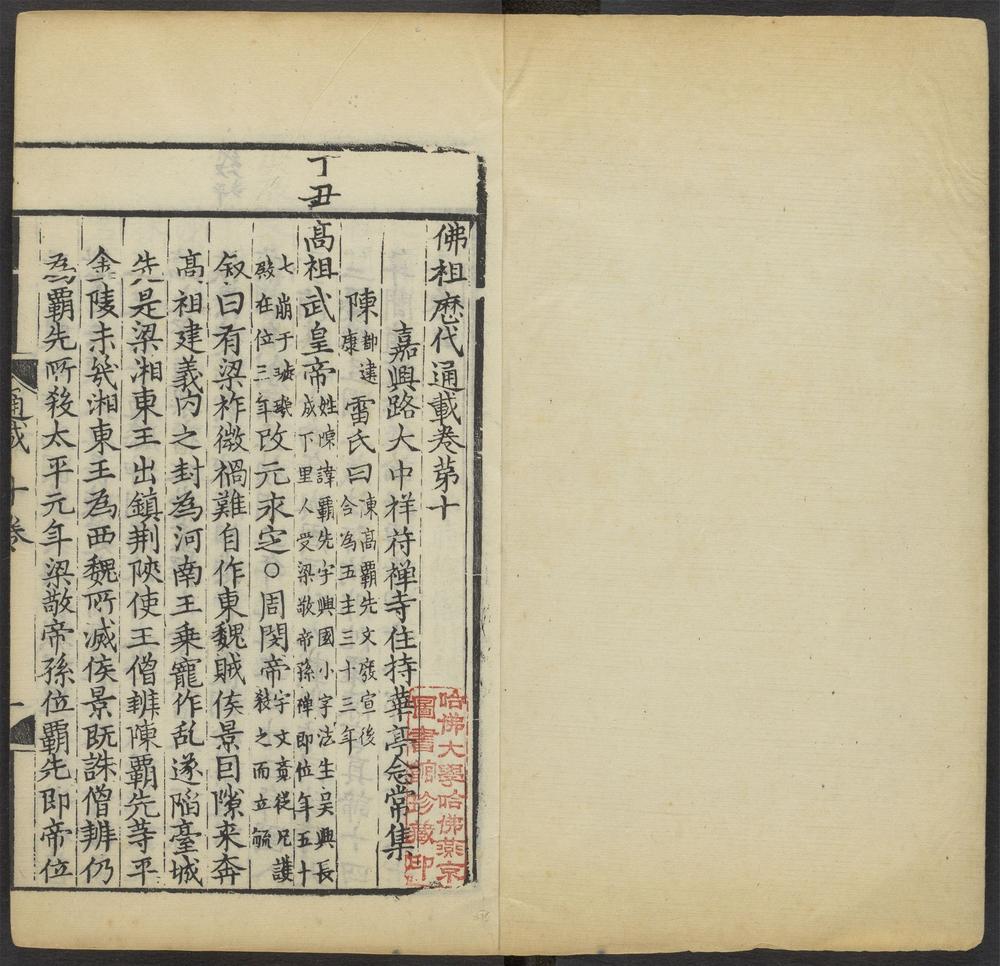 佛祖歷代通載卷第十
嘉興路大中祥符禅寺住持華亭念常集
陳都建康雷氏曰陳高霸先文癈宣後合為五主三十三年
丁丑
高祖武皇帝姓陳諱霸先字興國小字法生吴興長城下里人受梁敬帝孫禅即位年五十
七崩于璇璣殿在位三年改元永定○周閔帝字文覺從兄護殺之而立毓
叙曰有梁祚微禍難自作東魏賊侯景目隙来奔
髙祖建義内之封為河南王乗寵作乱遂陷臺城
先是梁湘東王出鎮荆陜使王僧辨陳霸先等平
金陵未㡬湘東王為西魏所滅侯景既誅僧辨仍
為霸先所殺太平元年梁敬帝孫位霸先即帝位
通载十卷
一
哈佛大學哈佛燕京
圖書館珍藏印